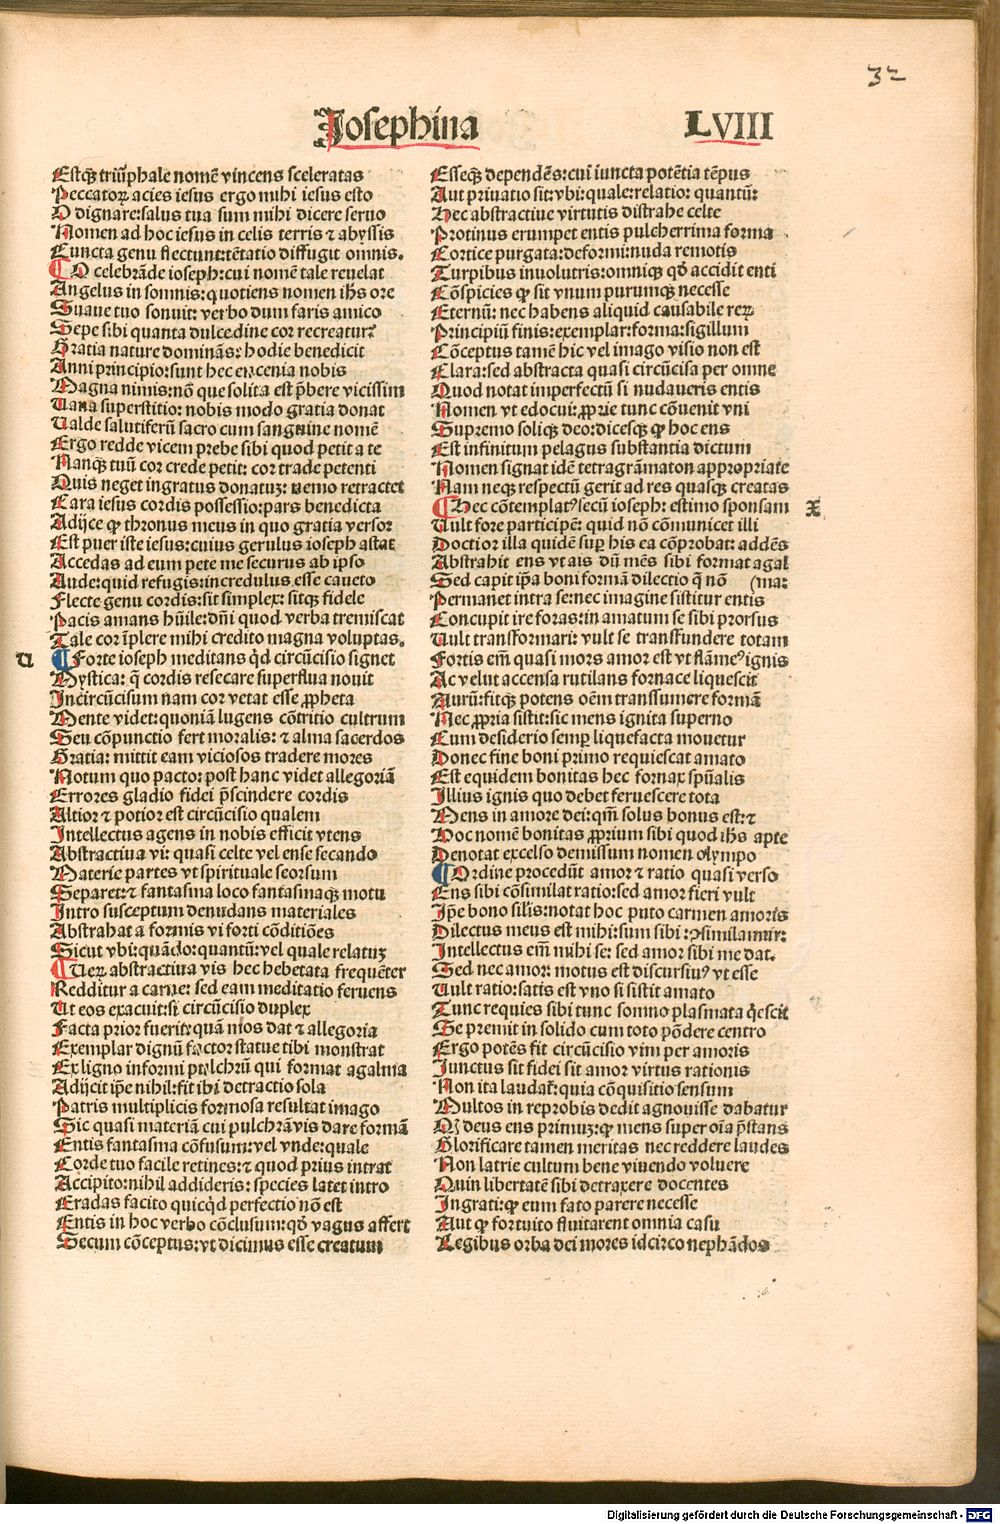 32
Josephina LVIII
Estqȝ triũphale nomẽ vincens sceleratas
Peccatoꝝ acies iesus ergo mihi iesus esto
O dignare: salus tua sum mihi dicere seruo
Nomen ad hoc iesus in celis terris ⁊ abyssis
Cuncta genu flectunt: tẽtatio diffugit omnis.
¶ O celebrãde ioseph: cui nomẽ tale reuelat
Angelus in somnis: quotiens nomen ihs ore
Suaue tuo sonuit: verbo dum faris amico
Sepe sibi quanta dulcedine cor recreatur?
Gratia nature dominãs: hodie benedicit
Anni principio: sunt hec encenia nobis
Magna nimis: nõ que solita est p̃bere vicissim
Uana superstitio: nobis modo gratia donat
Ualde salutiferũ sacro cum sanguine nomẽ
Ergo redde vicem prebe sibi quod petit a te
Nanqȝ tuũ cor crede petit: cor trade petenti
Quis neget ingratus donatuȝ: nemo retractet
Cara iesus cordis possessio: pars benedicta
Adijce ꝙ thronus meus in quo gratia versor
Est puer iste iesus: cuius gerulus ioseph astat
Accedas ad eum pete me securus ab ipso
Aude: quid refugis: incredulus esse caueto
Flecte genu cordis: sit simplex: sitqȝ fidele
Pacis amans hũile: dñi quod verba tremiscat
Tale cor ĩplere mihi credito magna voluptas.
U ¶ Forte ioseph meditans qd circũcisio signet
Mystica: q̃ cordis resecare superflua nouit
Incircũcisum nam cor vetat esse ꝓpheta
Mente videt: quoniã lugens cõtritio cultrum
Seu cõpunctio fert moralis: ⁊ alma sacerdos
Gratia: mittit eam viciosos tradere mores
Notum quo pacto: post hanc videt allegoriã
Errores gladio fidei p̃scindere cordis
Altior ⁊ potior est circũcisio qualem
Intellectus agens in nobis efficit vtens
Abstractiua vi: quasi celte vel ense secando
Materie partes vt spirituale seorsum
Separet: ⁊ fantasma loco fantasmaqȝ motu
Intro susceptum denudans materiales
Abstrahat a formis vi forti cõditiões
Sicut vbi: quãdo: quantũ: vel quale relatuȝ
¶ Ueꝝ abstractiua vis hec hebetata frequẽter
Redditur a carne: sed eam meditatio feruens
Ut eos exacuit: si circũcisio duplex
Facta prior fuerit: quã mos dat ⁊ allegoria
Exemplar dignũ factor statue tibi monstrat
Ex ligno informi pulchrũ qui format agalma
Adijcit ip̃e nihil: fit ibi detractio sola
Patris multiplicis formosa resultat imago
Sic quasi materiã cui pulchrã vis dare formã
Entis fantasma cõfusum: vel vnde: quale
Corde tuo facile retines: ⁊ quod prius intrat
Accipito: nihil addideris: species latet intro
Eradas facito quicqd perfectio nõ est
Entis in hoc verbo cõclusum: qđ vagus affert
Secum cõceptus: vt dicimus esse creatum
Esseqȝ dependẽs: cui iuncta potẽtia tẽpus
Aut priuatio sit: vbi: quale: relatio: quantũ:
Hec abstractiue virtutis distrahe celte
Protinus erumpet entis pulcherrima forma
Cortice purgata: deformi: nuda remotis
Turpibus inuolutris: omniqȝ qđ accidit enti
Cõspicies ꝙ sit vnum purumqȝ necesse
Eternũ: nec habens aliquid causabile reꝝ
Principiũ finis: exemplar: forma: sigillum
Cõceptus tamẽ hic vel imago visio non est
Clara: sed abstracta quasi circũcisa per omne
Quod notat imperfectũ si nudaueris entis
Nomen vt edocui: ꝓprie tunc cõuenit vni
Supremo soliqȝ deo: dicesqȝ ꝙ hoc ens
Est infinitum pelagus substantia dictum
Nomen signat idẽ tetragrãmaton appropriate
Nam neqȝ respectũ gerit ad res quasqȝ creatas
¶ Hec cõtemplatꝰ secũ ioseph: estimo sponsam X
Uult fore participẽ: quid nõ cõmunicet illi
Doctior illa quidẽ suꝑ his ea cõprobat: addẽs
Abstrahit ens vt ais dũ mẽs sibi format agal
Sed capit ip̃a boni formã dilectio q̃ nõ (ma:
Permanet intra se: nec imagine sistitur entis
Concupit ire foras: in amatum se sibi prorsus
Uult transformari: vult se transfundere totam
Fortis em̃ quasi mors amor est vt flãmeꝰ ignis
Ac velut accensa rutilans fornace liquescit
Aurũ: fitqȝ potens oẽm transsumere formã
Nec ꝓpria sistit: sic mens ignita superno
Cum desiderio semꝑ liquefacta mouetur
Donec fine boni primo requiescat amato
Est equidem bonitas hec fornax spũalis
Illius ignis quo debet feruescere tota
Mens in amore dei: qm̃ solus bonus est: ⁊
Hoc nomẽ bonitas ꝓprium sibi quod ihs apte
Denotat excelso demissum nomen olympo
¶ Ordine procedũt amor ⁊ ratio quasi verso
Ens sibi cõsimilat ratio: sed amor fieri vult
Ip̃e bono silis: notat hoc puto carmen amoris
Dilectus meus est mihi: sum sibi: ꝯsimilamur:
Intellectus em̃ mihi se: sed amor sibi me dat.
Sed nec amor: motus est discursiuꝰ vt esse
Uult ratio: satis est vno si sistit amato
Tunc requies sibi tunc somno plasmata q̃escit
Se premit in solido cum toto põdere centro
Ergo potẽs fit circũcisio vim per amoris
Junctus sit fidei sit amor virtus rationis
Non ita laudat̃: quia cõquisitio sensum
Multos in reprobis dedit agnouisse dabatur
Qđ deus ens primuȝ: ꝙ mens super oĩa p̃stans
Glorificare tamen meritas nec reddere laudes
Non latrie cultum bene viuendo voluere
Quin libertatẽ sibi detraxere docentes
Ingrati: ꝙ eum fato parere necesse
Aut ꝙ fortuito fluitarent omnia casu
Legibus orba dei mores idcirco nephãdos
Digitalisierung gefördert durch die Deutsche Forschungsgemeinschaft - DFG